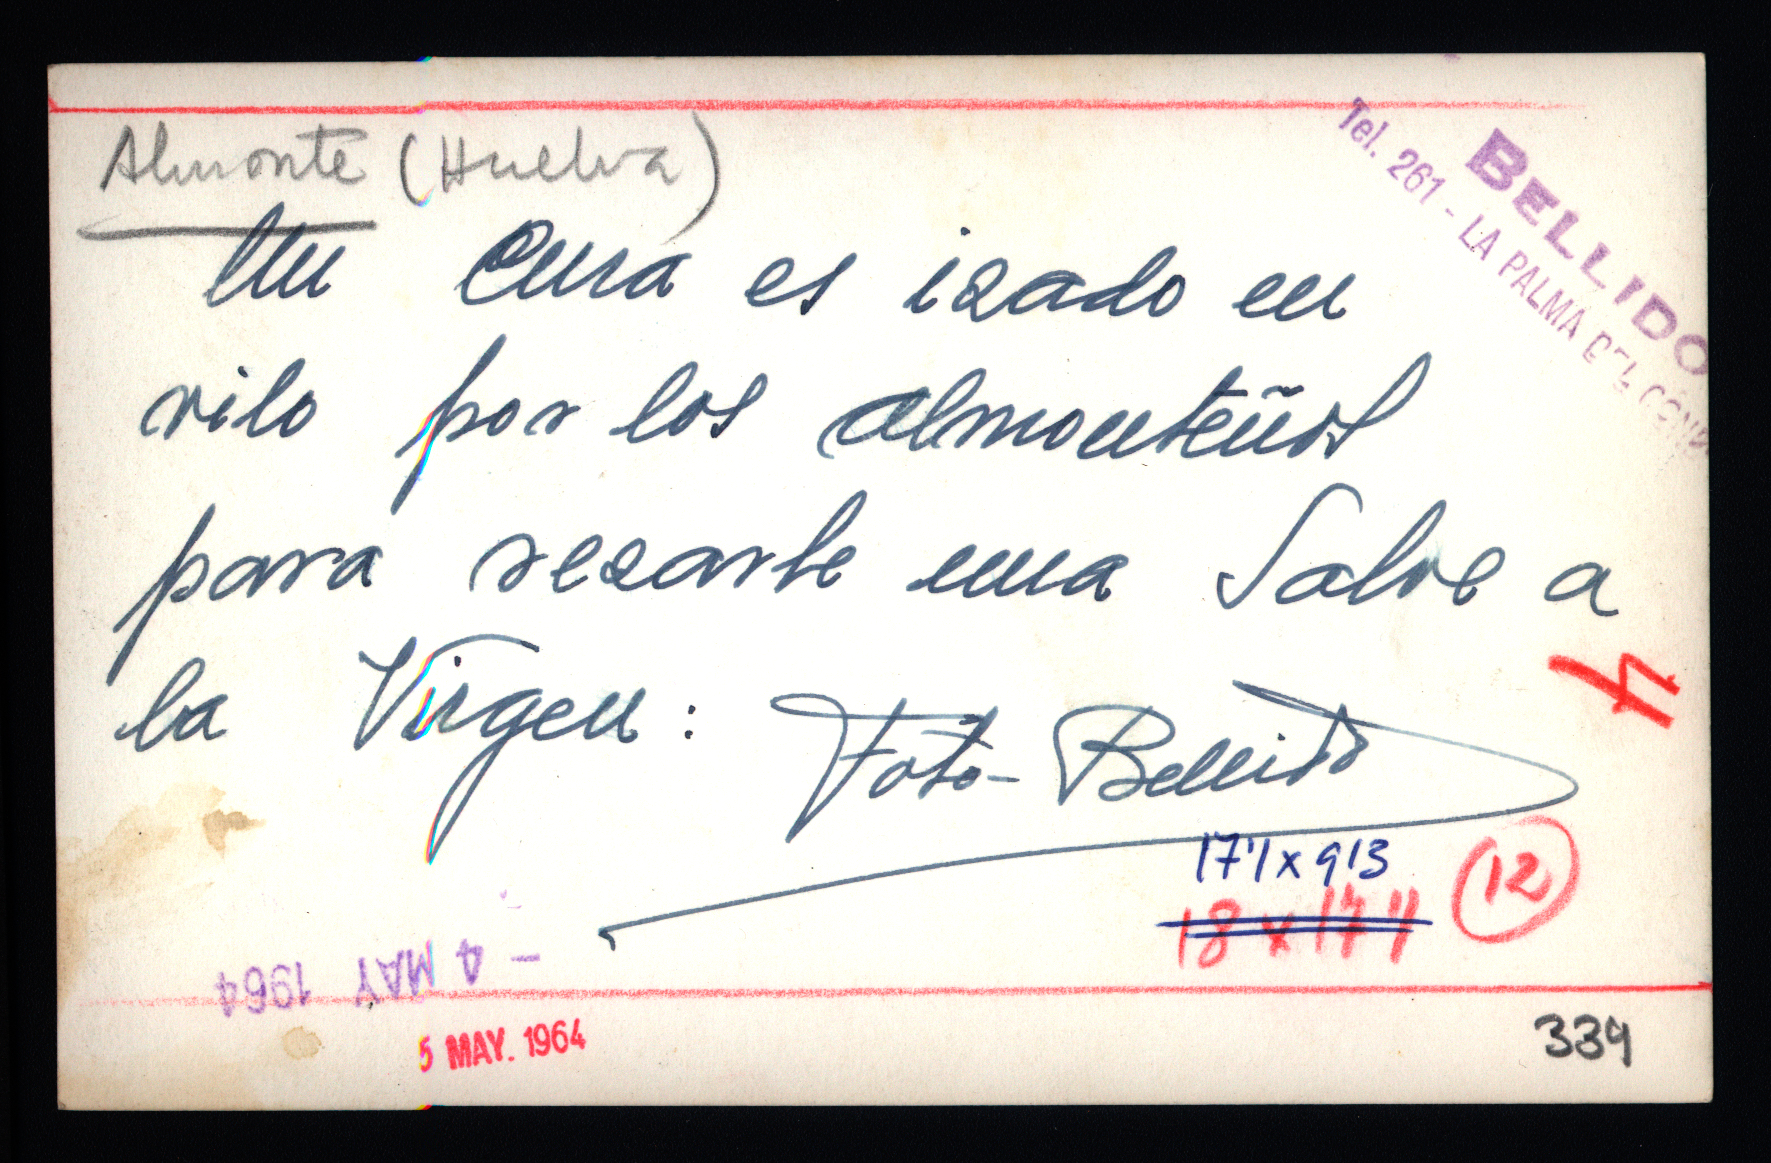 Almonte (Huelva)
BELLIDO
Tel. 261 - LA PALMA DEL COND
Un Cura es izado en
vilo por los almonteños
para rezarle una Salve a
la Virgen :
Foto - Bellido
4
17'1 x 9'3
12
- 4 MAY 1964
5 MAY. 1964
339